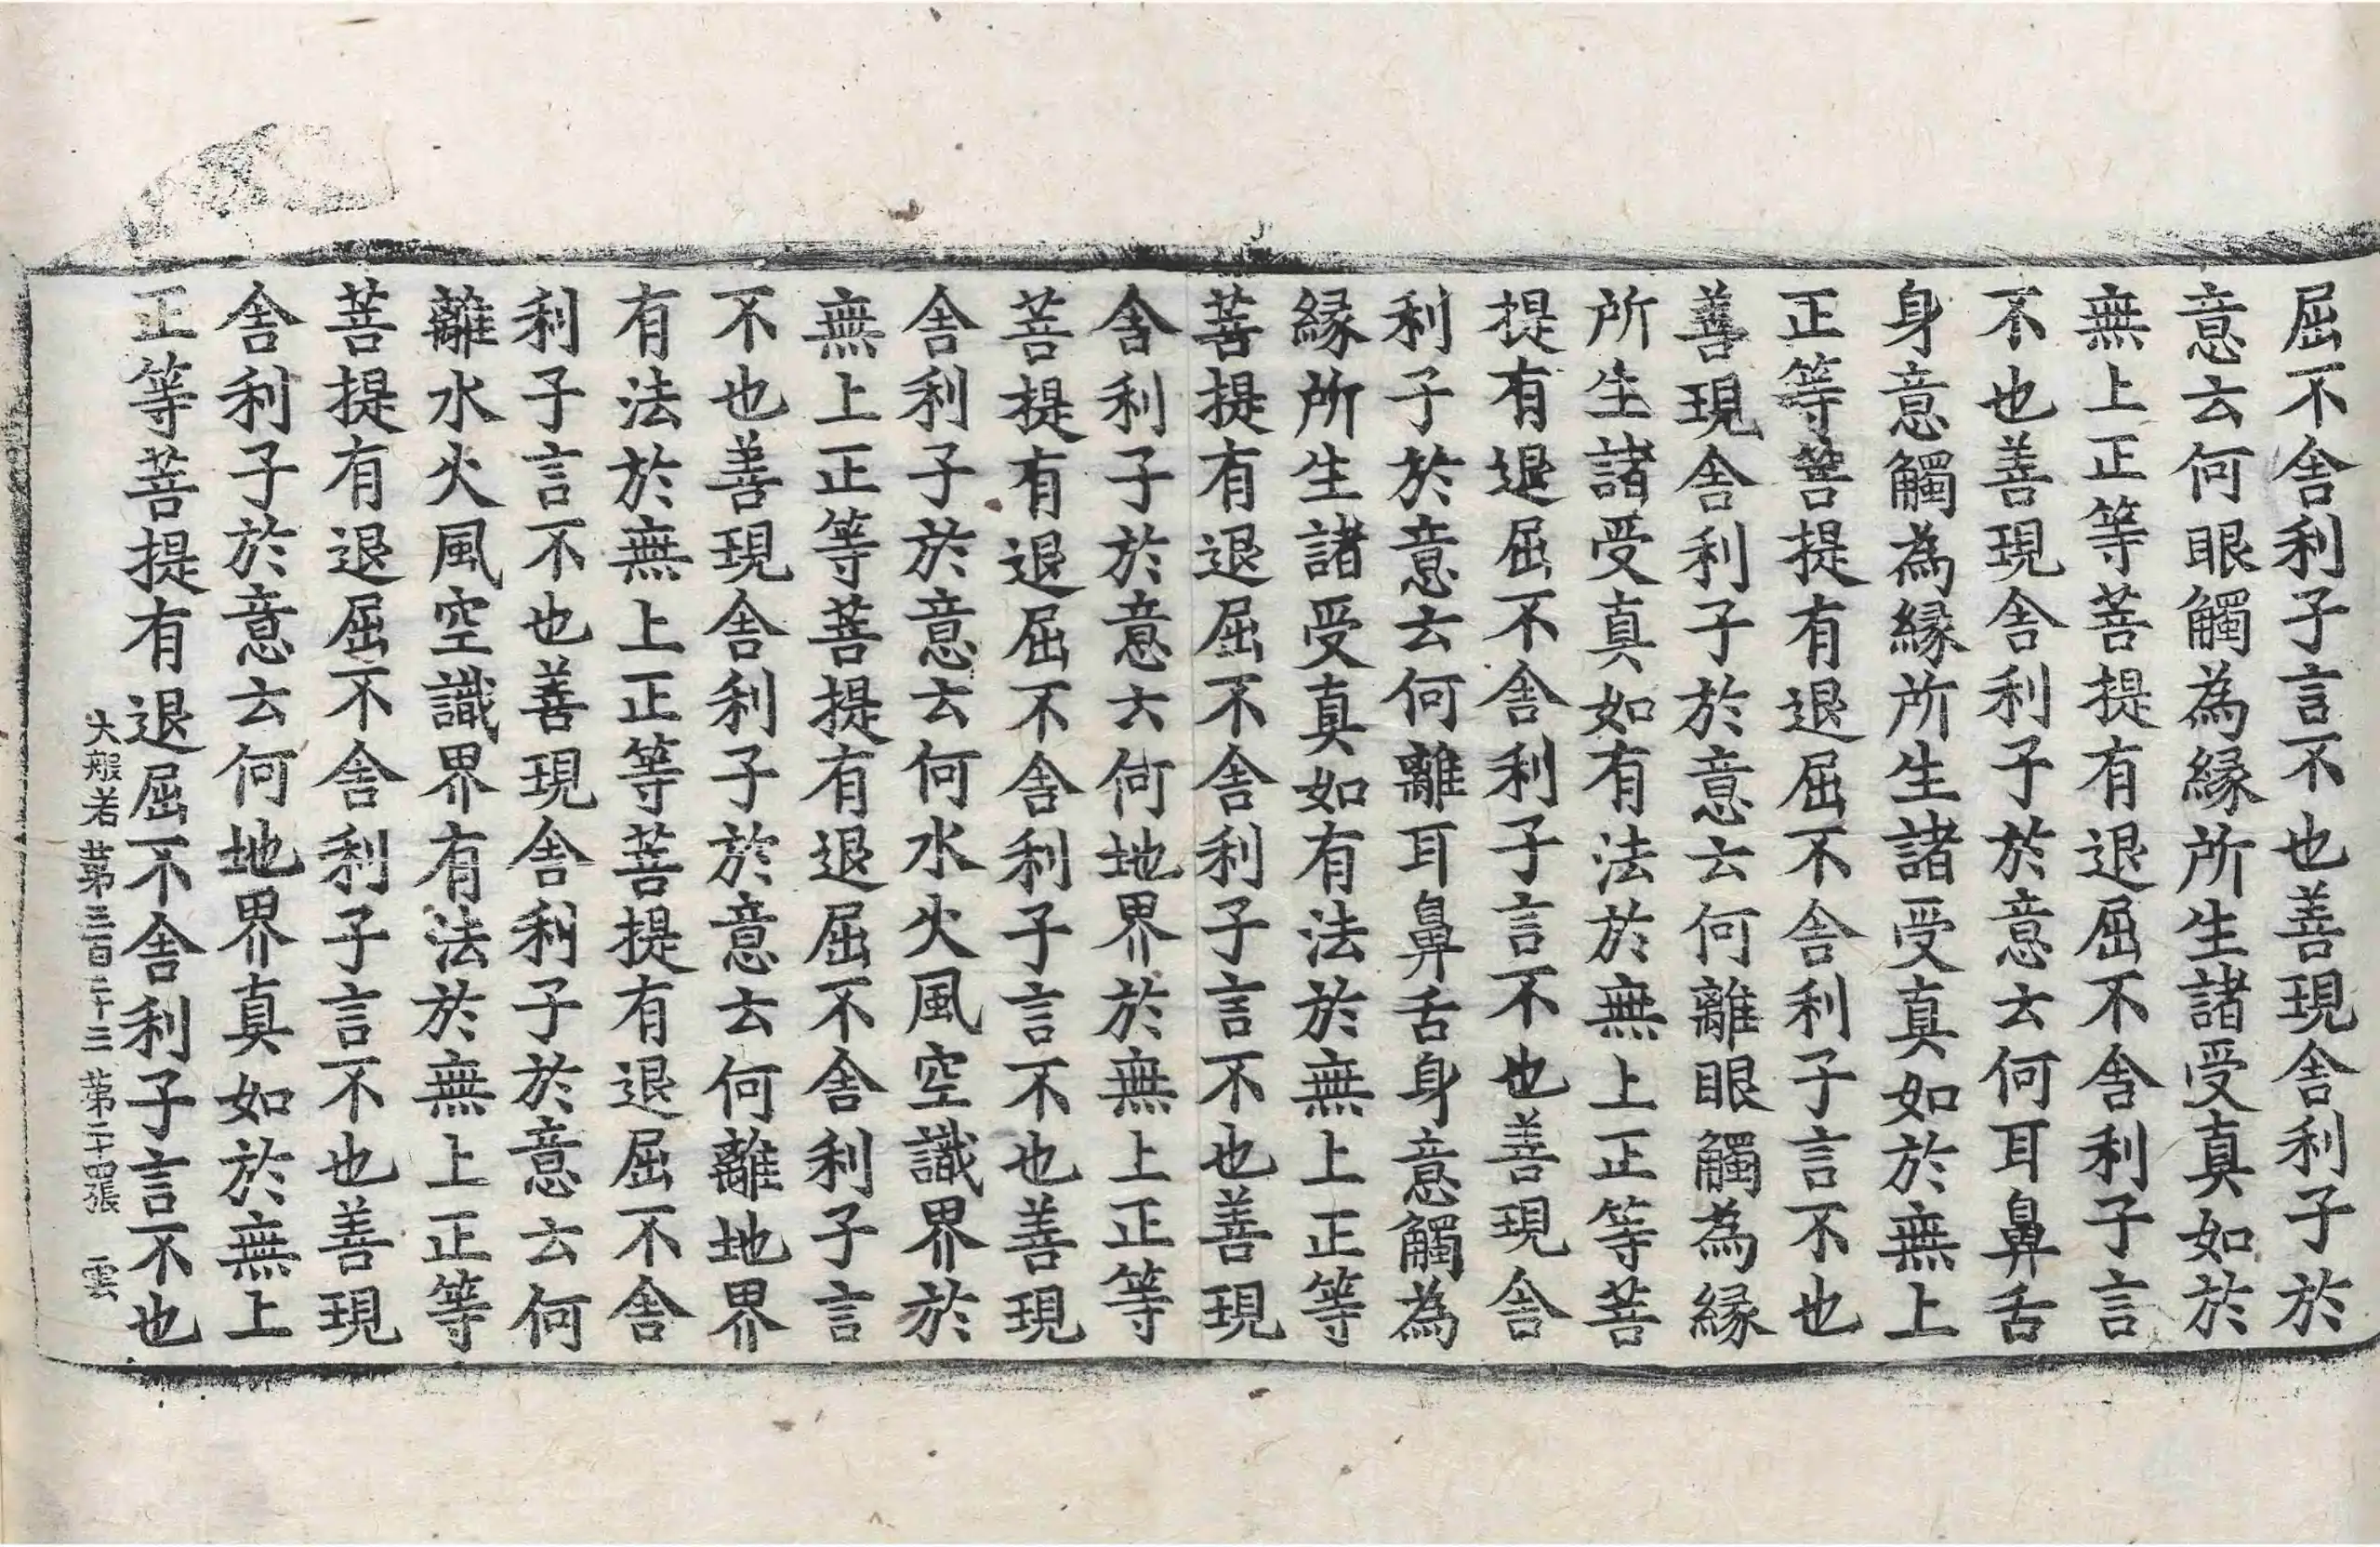 屈不舍利子言不也善現舍利子於
意云何眼觸為緣所生諸受真如於
無上正等菩提有退屈不舍利子言
不也善現舍利子於意云何耳鼻舌
身意觸為緣所生諸受真如於無上
正等菩提有退屈不舍利子言不也
善現舍利子於意云何離眼觸為緣
所生諸受真如有法於無上正等菩
提有退屈不舍利子言不也善現舍
利子於意云何離耳鼻舌身意觸為
緣所生諸受真如有法於無上正等
菩提有退屈不舍利子言不也善現
舍利子於意云何地界於無上正等
菩提有退屈不舍利子言不也善現
舍利子於意云何水火風空識界於
無上正等菩提有退屈不舍利子言
不也善現舍利子於意云何離地界
有法於無上正等菩提有退屈不舍
利子言不也善現舍利子於意云何
離水火風空識界有法於無上正等
菩提有退屈不舍利子言不也善現
舍利子於意云何地界真如於無上
正等菩提有退屈不舍利子言不也
大般若 第三百二十三 第二十四張 雲